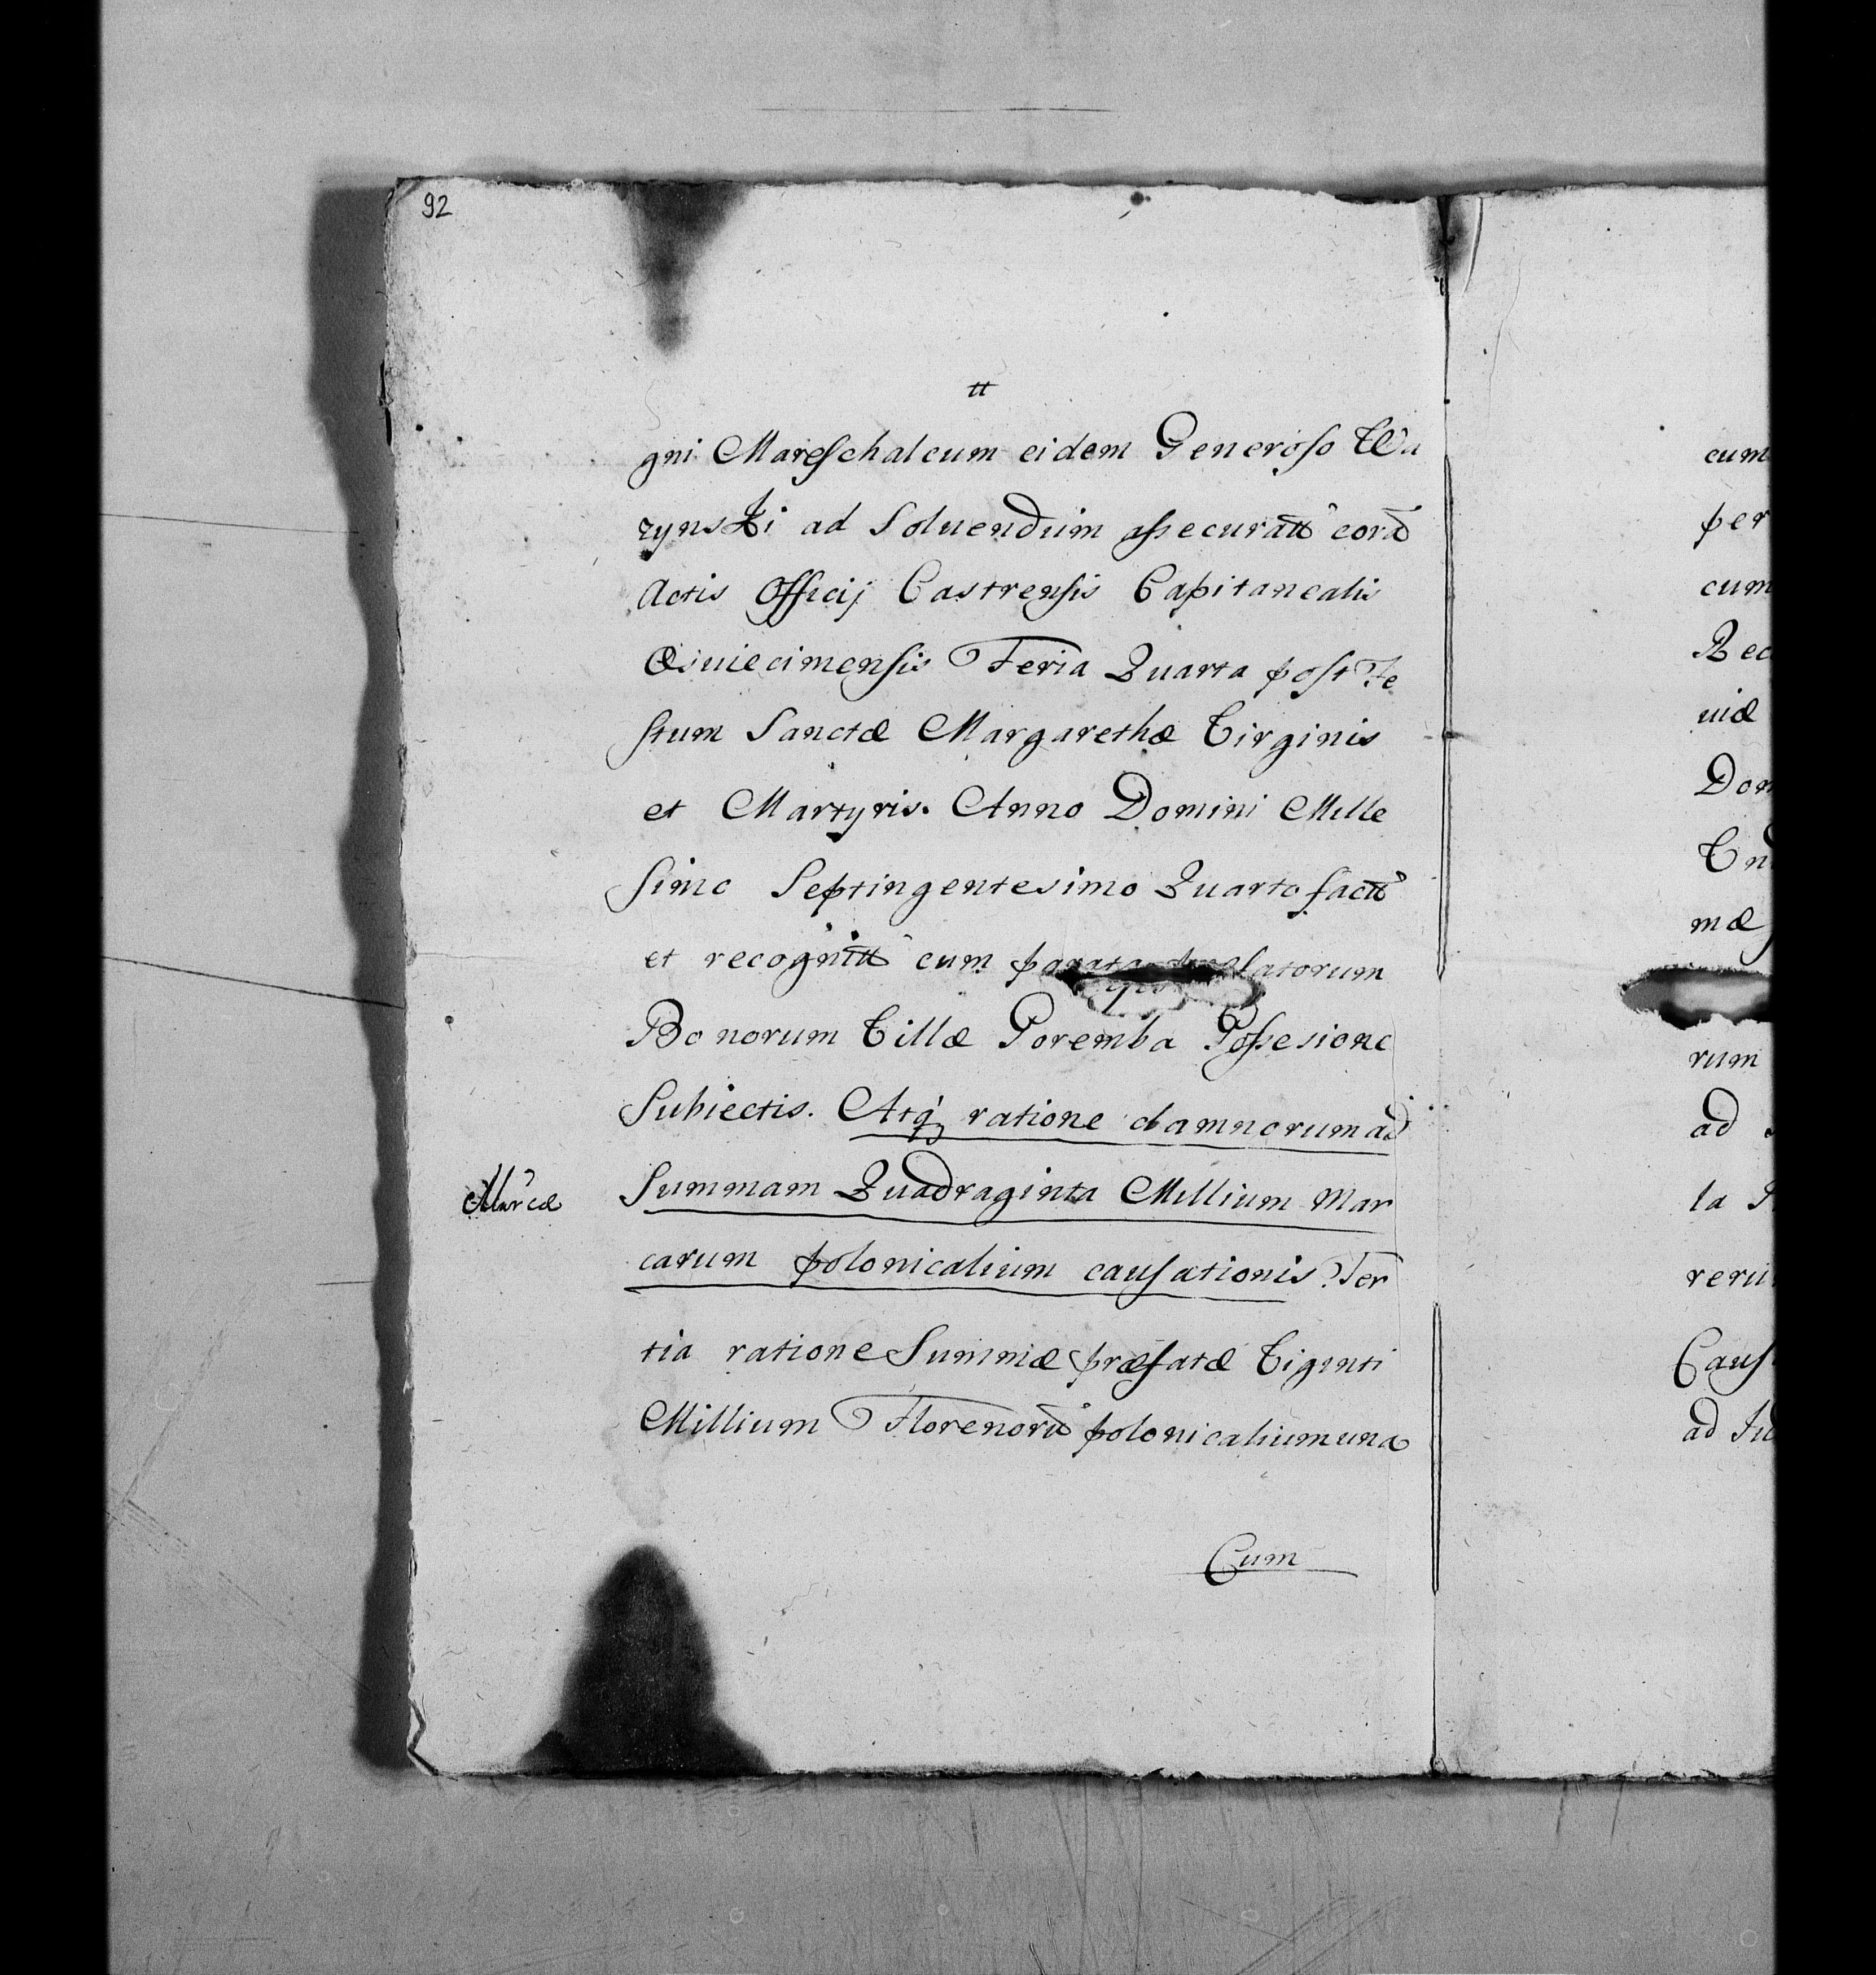 92
tt
gni Mareschalcum eidem Generoso Wa
zynski ad Soluendum assecuratt corā
Actis Officij Castrensis Capitanealis
Osuiecimensis Feria Quarta post Fe
stum Sanctæ Margarethæ Virginis
et Martyris. Anno Domini Mille
simo Septingentesimo Quarto factt
et recognitt cum latorum
Bonorum Villæ Poremba Possesione
Subiectis. Atq₃ ratione damnorum ad
Marcæ Summam Quadraginta Millium Mar
carum polonicalium causationis Ter
tia ratione Summæ præfatæ Viginti
Millium Florenorū polonicalium una
Cum
cum
per
cum
Rec
uiæ
Dom
Vnd
mæ
rum
ad
la P
reru
Caus
ad Iu